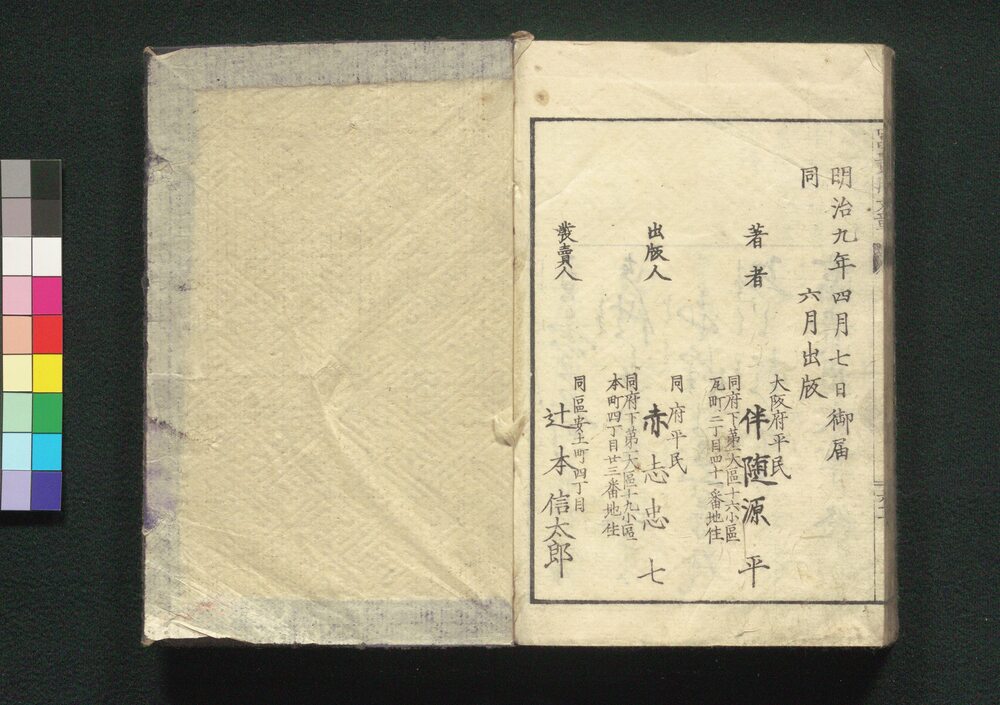 明治九年四月七日御届
同 六月出版
著者
大阪府平民
伴随源平
同府下第一大區十六小區
瓦町二丁目四十一番地住
出版人
同府平民
赤志忠七
同府下第一大區十九小區
本町四丁目廿三番地住
發賣人
同區安土町四丁目
辻本信太郎